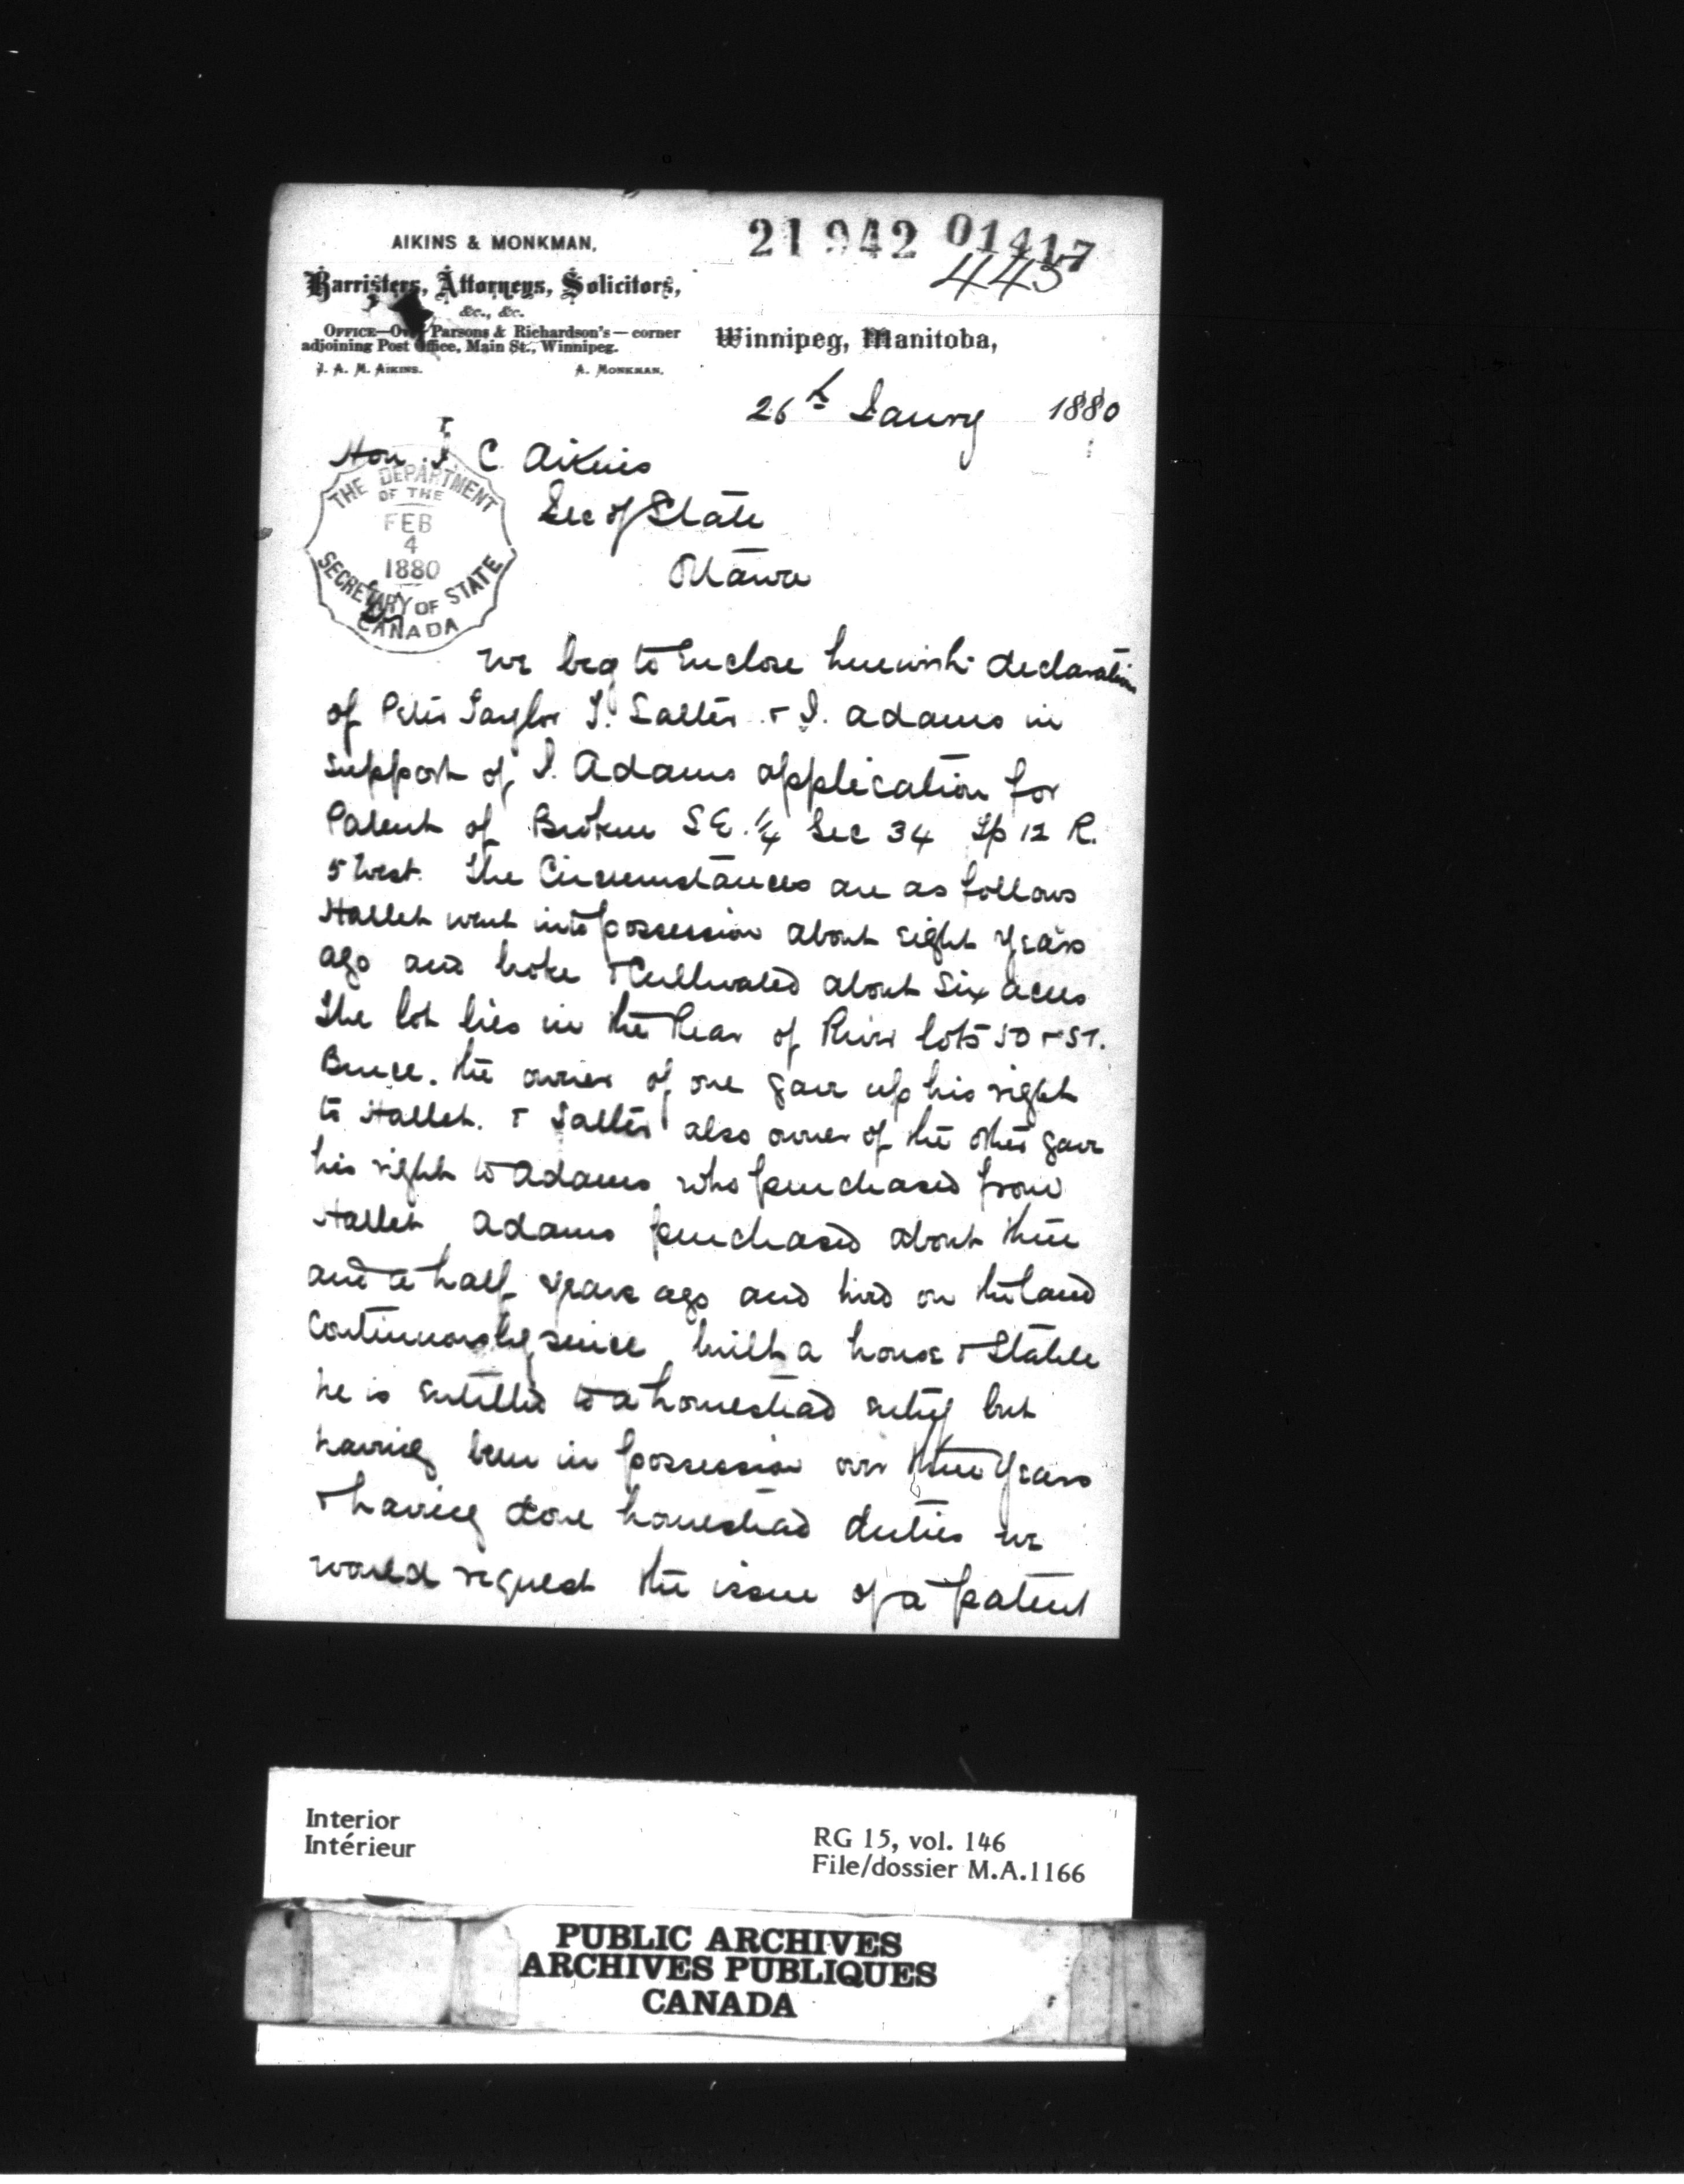 21942 01417
443
AIKINS & MONKMAN,
Barristers, Attorneys, Solicitors,
&c., &c.
OFFICE—Over Parsons & Richardson's—corner
adjoining Post Office, Main St., Winnipeg.
J. A. M. AIKINS. A. MONKMAN.
Winnipeg, Manitoba,
26th Jany 1880
Hon J. C. Aikins
Sec of State
Ottawa
THE DEPARTMENT
OF THE
FEB
4
1880
SECRETARY OF STATE
CANADA
Sir
We beg to Enclose herewith declaration
of Peter Taylor J. Salter & J. Adams in
support of J. Adams application for
Patent of Broken S E. 1/4 Sec 34 Tp 12 R.
5 West. The Circumstances are as follows
Hallet went into possession about eight years
ago and broke & Cultivated about Six acres
The lot lies in the Rear of River lots 50 & 51.
Bruce. the owner of one gave up his right
to Hallet. & Salter also owner of the other gave
his right to Adams who purchased from
Hallet Adams purchased about three
and a half years ago and lived on the land
Continuously since built a house & Stable
he is entitled to a homestead entry but
having been in possession over three years
& having done homestead duties we
would request the issue of a patent
Interior
Intérieur
RG 15, vol. 146
File/dossier M.A.1166
PUBLIC ARCHIVES
ARCHIVES PUBLIQUES
CANADA